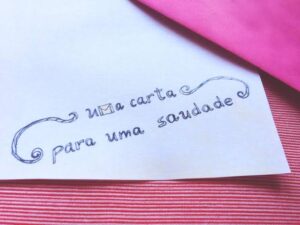 uma carta
para uma saudade